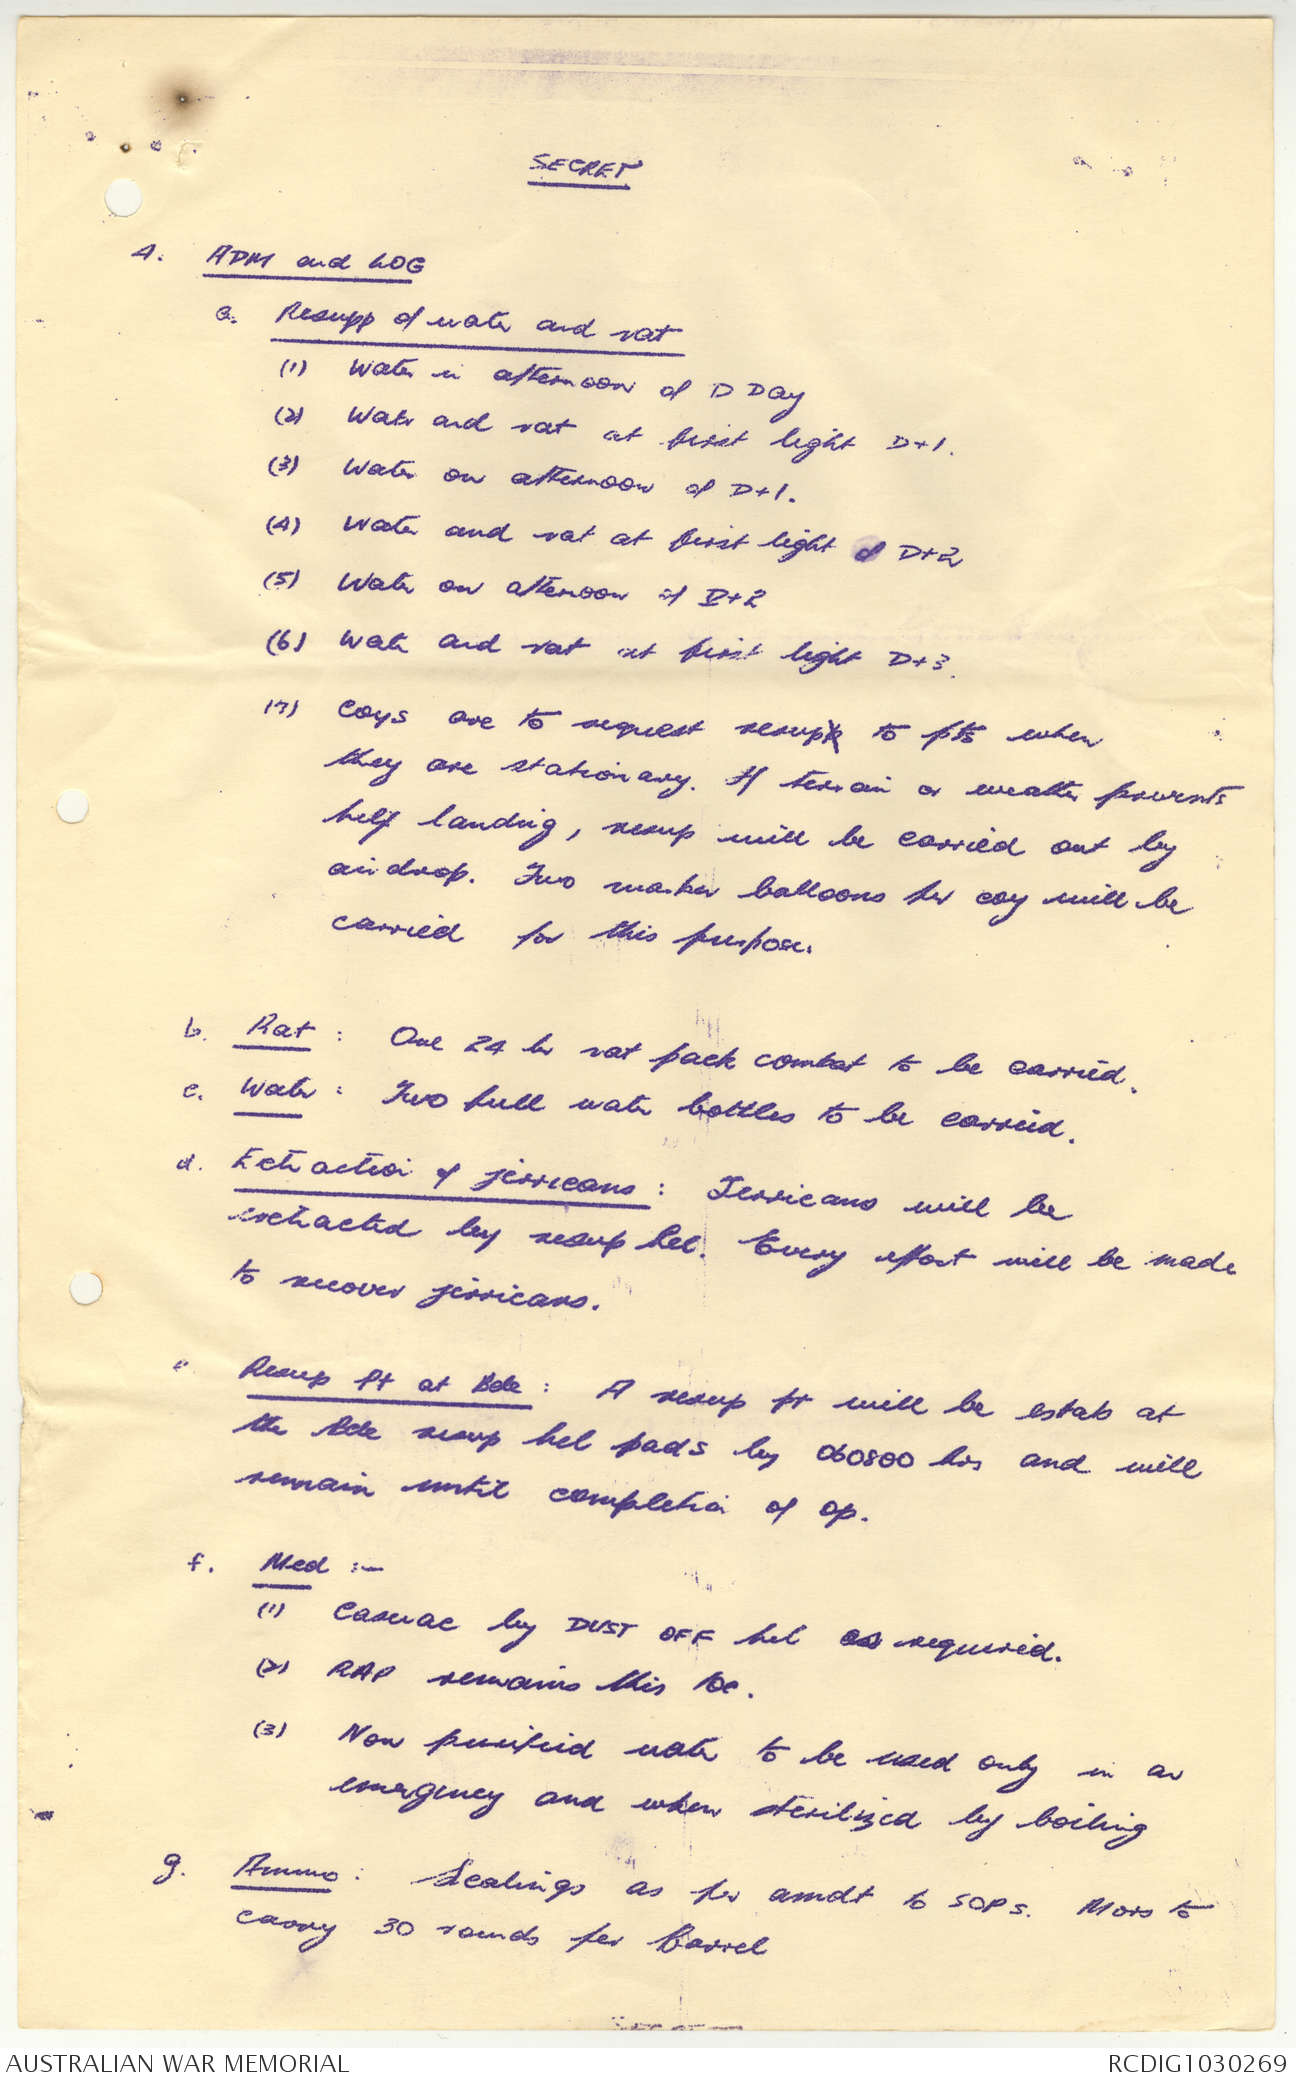 SECRET
4. ADM and LOG
a. Resupp of water and rat
(1) Water in afternoon of D Day
(2) Water and rat at first light D+1.
(3) Water on afternoon of D+1.
(4) Water and rat at first light of D+2
(5) Water on afternoon of D+2
(6) Water and rat at first light D+3.
(7) Coys are to request resup to pts when
they are stationary. If terrain or weather prevents
help landing, resup will be carried out by
airdrop. Two marker balloons per coy will be
carried for this purpose.
b. Rat: One 24 hr rat pack combat to be carried.
c. Water: Two full water bottles to be carried.
d. Extraction of jerricans: Jerricans will be
extracted by resup hel. Every effort will be made
to recover jerricans.
e. Resup Pt at Bde: A resup pt will be estab at
the Bde resup hel pads by 060800 hrs and will
remain until completion of op.
f. Med :-
(1) Casevac by DUST OFF hel as required.
(2) RAP remains this loc.
(3) Non purified water to be used only in an
emergency and when sterilized by boiling
g. Ammo: Scalings as per amdt to SOPs. Mors to
carry 30 rounds per barrel
SECRET
AUSTRALIAN WAR MEMORIAL
RCDIG1030269